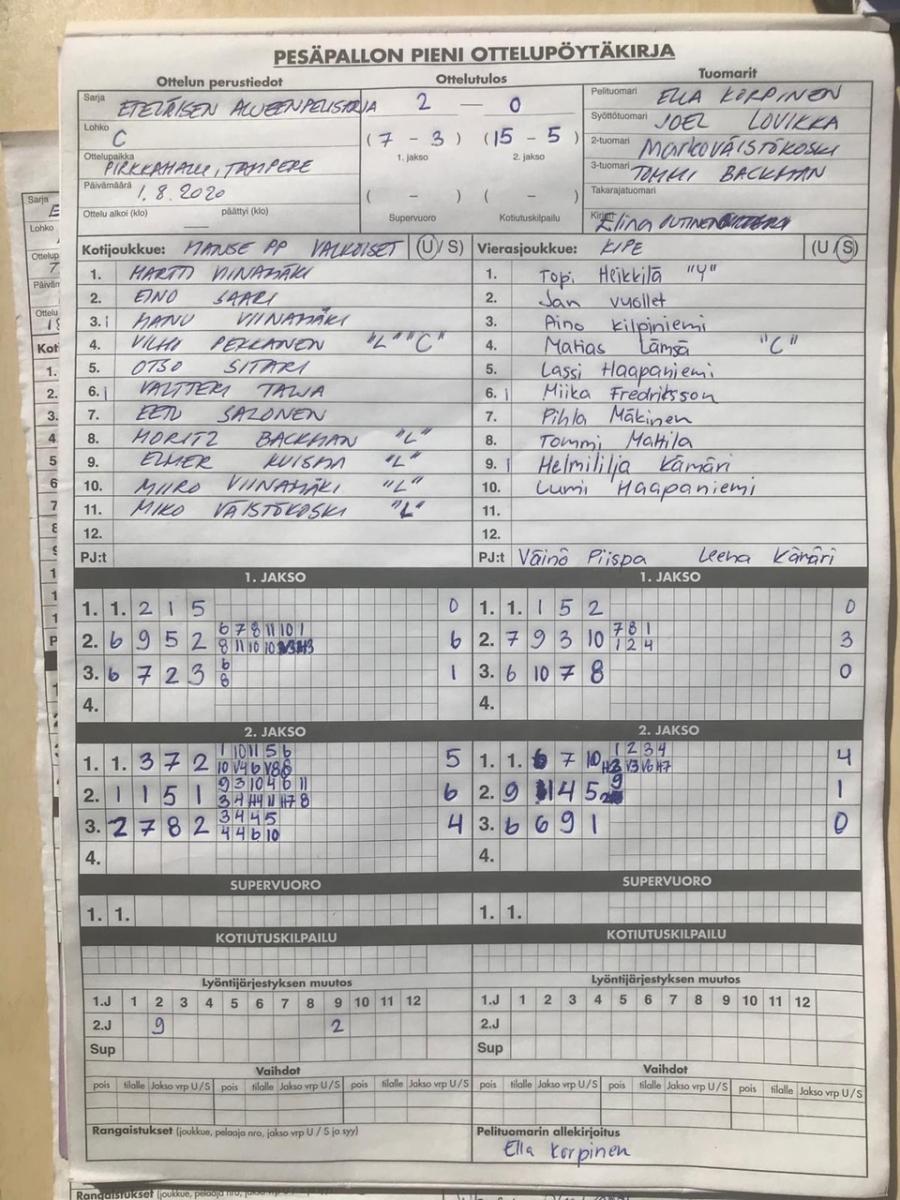 PESÄPALLON PIENI OTTELUPÖYTÄKIRJA
Ottelun perustiedot
Sarja ETELÄISEN ALUEEN PELISARJA
Lohko C
Ottelupaikka PIRKKAHALLI, TAMPERE
Päivämäärä 1.8.2020
Ottelu alkoi (klo) — päättyi (klo)
Ottelutulos
2 — 0
(7 - 3) (15 - 5)
1. jakso 2. jakso
( - ) ( - )
Supervuoro Kotiutuskilpailu
Tuomarit
Pelituomari ELLA KORPINEN
Syöttötuomari JOEL LOVIKKA
2-tuomari MARKO VÄISTÖKOSKI
3-tuomari TOMMI BACKMAN
Takarajatuomari
Kirjuri Elina UUTINEN
Kotijoukkue: MANSE PP VALKOISET (U/S)
1. MARTTI VIINAMÄKI
2. EINO SAARI
3. MANU VIINAMÄKI
4. VILHI PEKKANEN "L" "C"
5. OTSO SITARI
6. VALTTERI TALJA
7. EETU SALONEN
8. MORITZ BACKMAN "L"
9. ELMER KUISMA "L"
10. MIIRO VIINAMÄKI "L"
11. MIKO VÄISTÖKOSKI "L"
12.
PJ:t
Vierasjoukkue: KIPE (U/S)
1. Topi Heikkilä "Y"
2. Jan Vuollet
3. Aino Kilpiniemi
4. Matias Lämsä "C"
5. Lassi Haapaniemi
6. Miika Fredriksson
7. Pihla Mäkinen
8. Tommi Mattila
9. Helmililja Kämäri
10. Lumi Haapaniemi
11.
12.
PJ:t Väinö Piispa Leena Kämäri
1. JAKSO
1. 1. 2 1 5 0
2. 6 9 5 2 6 7 8 11 10 1 6
8 11 10 10
3. 6 7 2 3 6 1
8
4.
1. JAKSO
1. 1. 1 5 2 0
2. 7 9 3 10 7 8 1 3
1 2 4
3. 6 10 7 8 0
4.
2. JAKSO
1. 1. 3 7 2 1 10 11 5 6 5
10 V4 6 V8 8
2. 1 1 5 1 9 3 10 4 6 11 6
3 4 H4 11 H7 8
3. 2 7 8 2 3 4 4 5 4
4 4 6 10
4.
2. JAKSO
1. 1. 6 7 10 1 2 3 4 4
H2 V3 V6 H7
2. 9 4 5 9 1
3. 6 6 9 1 0
4.
SUPERVUORO
1. 1.
SUPERVUORO
1. 1.
KOTIUTUSKILPAILU
KOTIUTUSKILPAILU
Lyöntijärjestyksen muutos
1.J 1 2 3 4 5 6 7 8 9 10 11 12
2.J 9 2
Sup
Lyöntijärjestyksen muutos
1.J 1 2 3 4 5 6 7 8 9 10 11 12
2.J
Sup
Vaihdot
pois tilalle Jakso vrp U/S pois tilalle Jakso vrp U/S pois tilalle Jakso vrp U/S
Vaihdot
pois tilalle Jakso vrp U/S pois tilalle Jakso vrp U/S pois tilalle Jakso vrp U/S
Rangaistukset (joukkue, pelaaja nro, jakso vrp U / S ja syy)
Pelituomarin allekirjoitus
Ella Korpinen
Rangaistukset (joukkue, pelaaja nro, jakso vrp U / S ja syy)